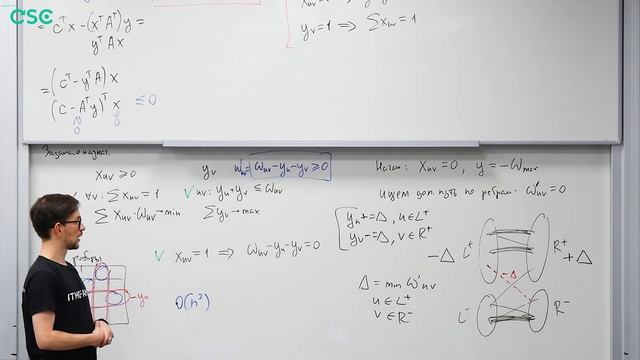 CSC
= cᵀx - (xᵀAᵀ)y =
yᵀAx
= (cᵀ - yᵀA) x
(c - Aᵀy)ᵀ x ≤ 0
0 0
y_v = 1 ⟹ ∑ x_uv = 1
Задача о назнач.
x_uv ≥ 0
∀v: ∑ x_uv = 1
∑ x_uv · ω_uv → min
y_v
ω'_uv = ω_uv - y_u - y_v ≥ 0
√ uv: y_u + y_v ≤ ω_uv
∑ y_v → max
√ x_uv = 1 ⟹ ω_uv - y_u - y_v = 0
O(n³)
-y_u
ITMO
Начал: x_uv = 0, y = -ω_max
ищем доп. путь по ребрам: ω'_uv = 0
y_u += Δ, u ∈ L⁺
y_v -= Δ, v ∈ R⁺
Δ = min ω'_uv
u ∈ L⁺
v ∈ R⁻
-Δ L⁺ R⁺ +Δ
-Δ
L⁻ R⁻